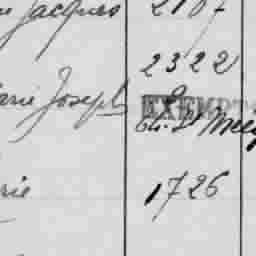 Jacques 2107
2322
arie Joseph EXEMPT
Ch. St Mee
rie 1726